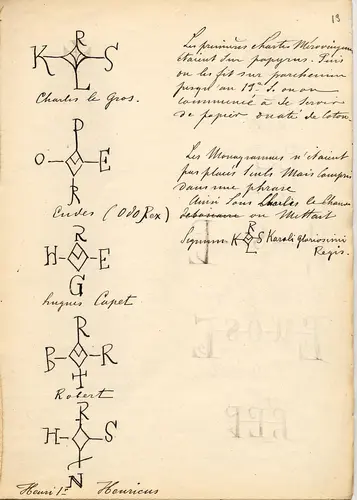 13
K R S L
Charles le Gros.
D O E R
Eudes (Odo Rex)
R H E G
hugues Capet
R B R T
Robert
R H S N
Henri 1er Henricus
Les premières chartes Mérovingien
étaient sur papyrus. Puis
on les fit sur parchemin
jusqu'au 19e S. où on
commence à se servir
de papier ouaté de coton.
Les Monogrammes n'étaient
pas placés seuls Mais compris
dans une phrase
Ainsi sous Charles le Chauve
on Mettait
Signum K R S L Karoli gloriosimi
Regis.